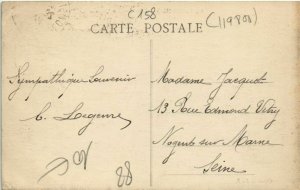 C158
(119801)
CARTE POSTALE
Sympathique Souvenir
Madame Jacquot
13 Rue Edmond Vitry
Nogent sur Marne
Seine
88